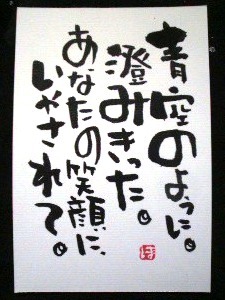 青空のように。
澄みきった。
あなたの笑顔に、
いやされて。